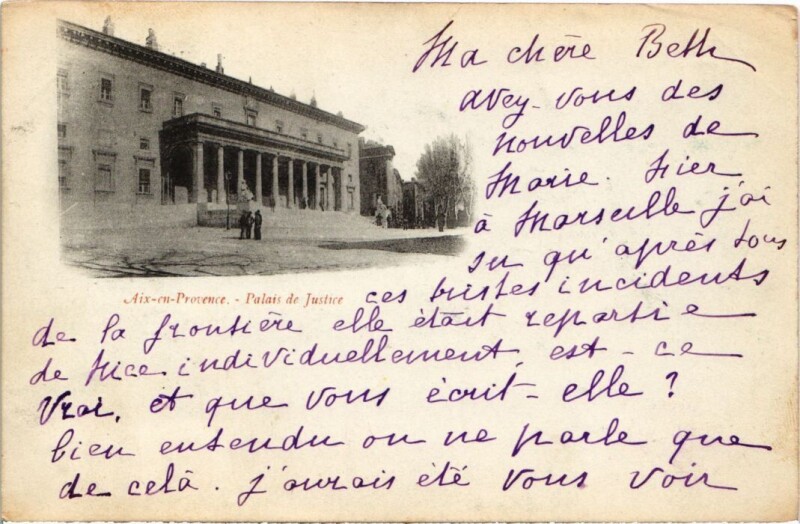 Ma chère Beth
avez-vous des
nouvelles de
Marie. Hier
à Marseille j'ai
su qu'après tous
ces tristes incidents
Aix-en-Provence. - Palais de Justice
de la frontière elle était repartie
de Nice individuellement, est-ce
vrai, et que vous écrit-elle ?
bien entendu on ne parle que
de celà. j'aurais été vous voir